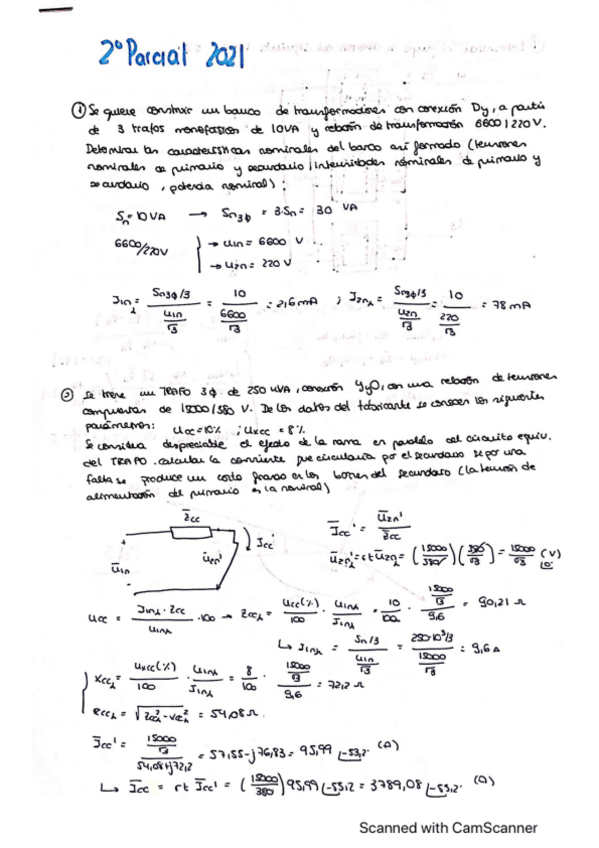 2º Parcial 2021
① Se quiere construir un banco de transformadores con conexión Dy, a partir
de 3 trafos monofásicos de 10VA y relación de transformación 6600/220V.
Determinar las características nominales del banco así formado (tensiones
nominales de primario y secundario, intensidades nominales de primario y
secundario, potencia nominal):
Sn=10VA → Sn3ϕ = 3·Sn = 30 VA
6600/220V } → U1n = 6600 V
→ U2n = 220 V
I1nλ = (Sn3ϕ/3)/(U1n/√3) = 10/(6600/√3) = 2,6 mA ; I2nλ = (Sn3ϕ/3)/(U2n/√3) = 10/(220/√3) = 78 mA
② Se tiene un TRAFO 3ϕ de 250 kVA, conexión Yy0, con una relación de tensiones
compuestas de 15000/380 V. De los datos del fabricante se conocen los siguientes
parámetros: Ucc=10% ; Uxcc = 8%
Se considera despreciable el efecto de la rama en paralelo del circuito equiv.
del TRAFO. Calcular la corriente que circularía por el secundario si por una
falla se produce un corto franco en los bornes del secundario (la tensión de
alimentación del primario es la nominal)
Zcc
Icc' = U2n'/Zcc
U1n U2n' Icc'
U2nλ' = rt U2nλ = (15000/380)(380/√3) = 15000/√3 (V)
Ucc = I1nλ · Zcc/U1nλ · 100 → Zccλ = Ucc(%)/100 · U1nλ/I1nλ = 10/100 · (15000/√3)/9,6 = 90,21 Ω
↳ I1nλ = (Sn/3)/(U1n/√3) = (250·10³/3)/(15000/√3) = 9,6 A
Xccλ = Uxcc(%)/100 · U1nλ/I1nλ = 8/100 · (15000/√3)/9,6 = 72,2 Ω
Rccλ = √(Zccλ² - Xccλ²) = 54,08 Ω.
Icc' = (15000/√3)/(54,08+j72,2) = 57,55-j76,83 = 95,99 |-53,2· (A)
↳ Icc = rt Icc' = (15000/380) 95,99 |-53,2 = 3789,08 |-53,2· (A)
Scanned with CamScanner